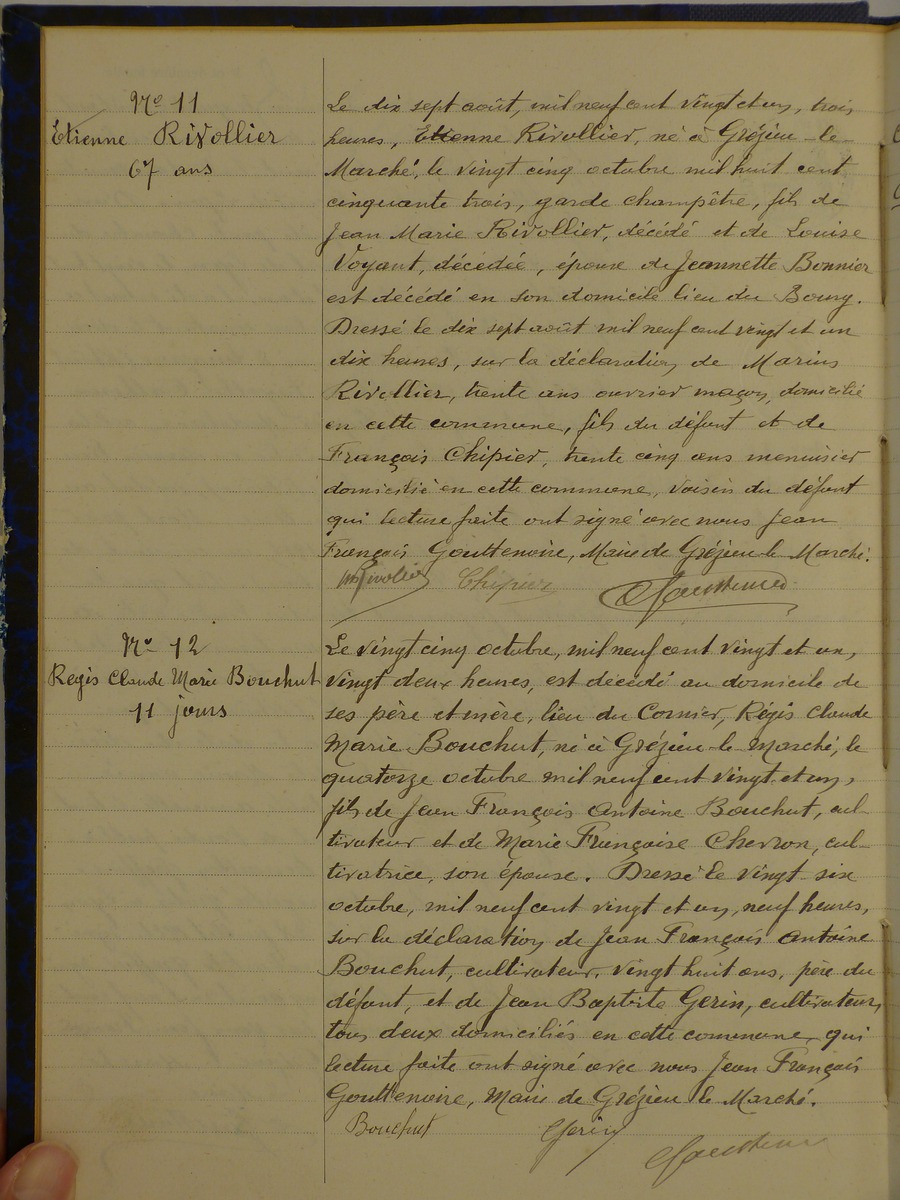 N° 11
Etienne Rivollier
67 ans
Le dix sept août, mil neuf cent vingt et un, trois
heures, Etienne Rivollier, né à Grézieu-le-
Marché, le vingt cinq octobre mil huit cent
cinquante trois, garde champêtre, fils de
Jean Marie Rivollier, décédé et de Louise
Voyant, décédée, époux de Jeannette Bonnier
est décédé en son domicile lieu du Bourg.
Dressé le dix sept août mil neuf cent vingt et un
dix heures, sur la déclaration de Marius
Rivollier, trente ans ouvrier maçon, domicilié
en cette commune, fils du défunt et de
François Chipier, trente cinq ans menuisier
domicilié en cette commune, voisin du défunt
qui lecture faite ont signé avec nous Jean
François Gouttenoire, Maire de Grézieu le Marché.
M Rivollier Chipier Gouttenoire
N° 12
Regis Claude Marie Bouchut
11 jours
Le vingt cinq octobre, mil neuf cent vingt et un,
vingt deux heures, est décédé au domicile de
ses père et mère, lieu du Cornier, Régis Claude
Marie Bouchut, né à Grézieu-le-Marché, le
quatorze octobre mil neuf cent vingt et un,
fils de Jean François Antoine Bouchut, cul-
tivateur et de Marie Françoise Cherron, cul-
tivatrice, son épouse. Dressé le vingt six
octobre, mil neuf cent vingt et un, neuf heures,
sur la déclaration de Jean François Antoine
Bouchut, cultivateur, vingt huit ans, père du
défunt, et de Jean Baptiste Gerin, cultivateur,
tous deux domiciliés en cette commune, qui
lecture faite ont signé avec nous Jean François
Gouttenoire, Maire de Grézieu le Marché.
Bouchut Gerin Gouttenoire